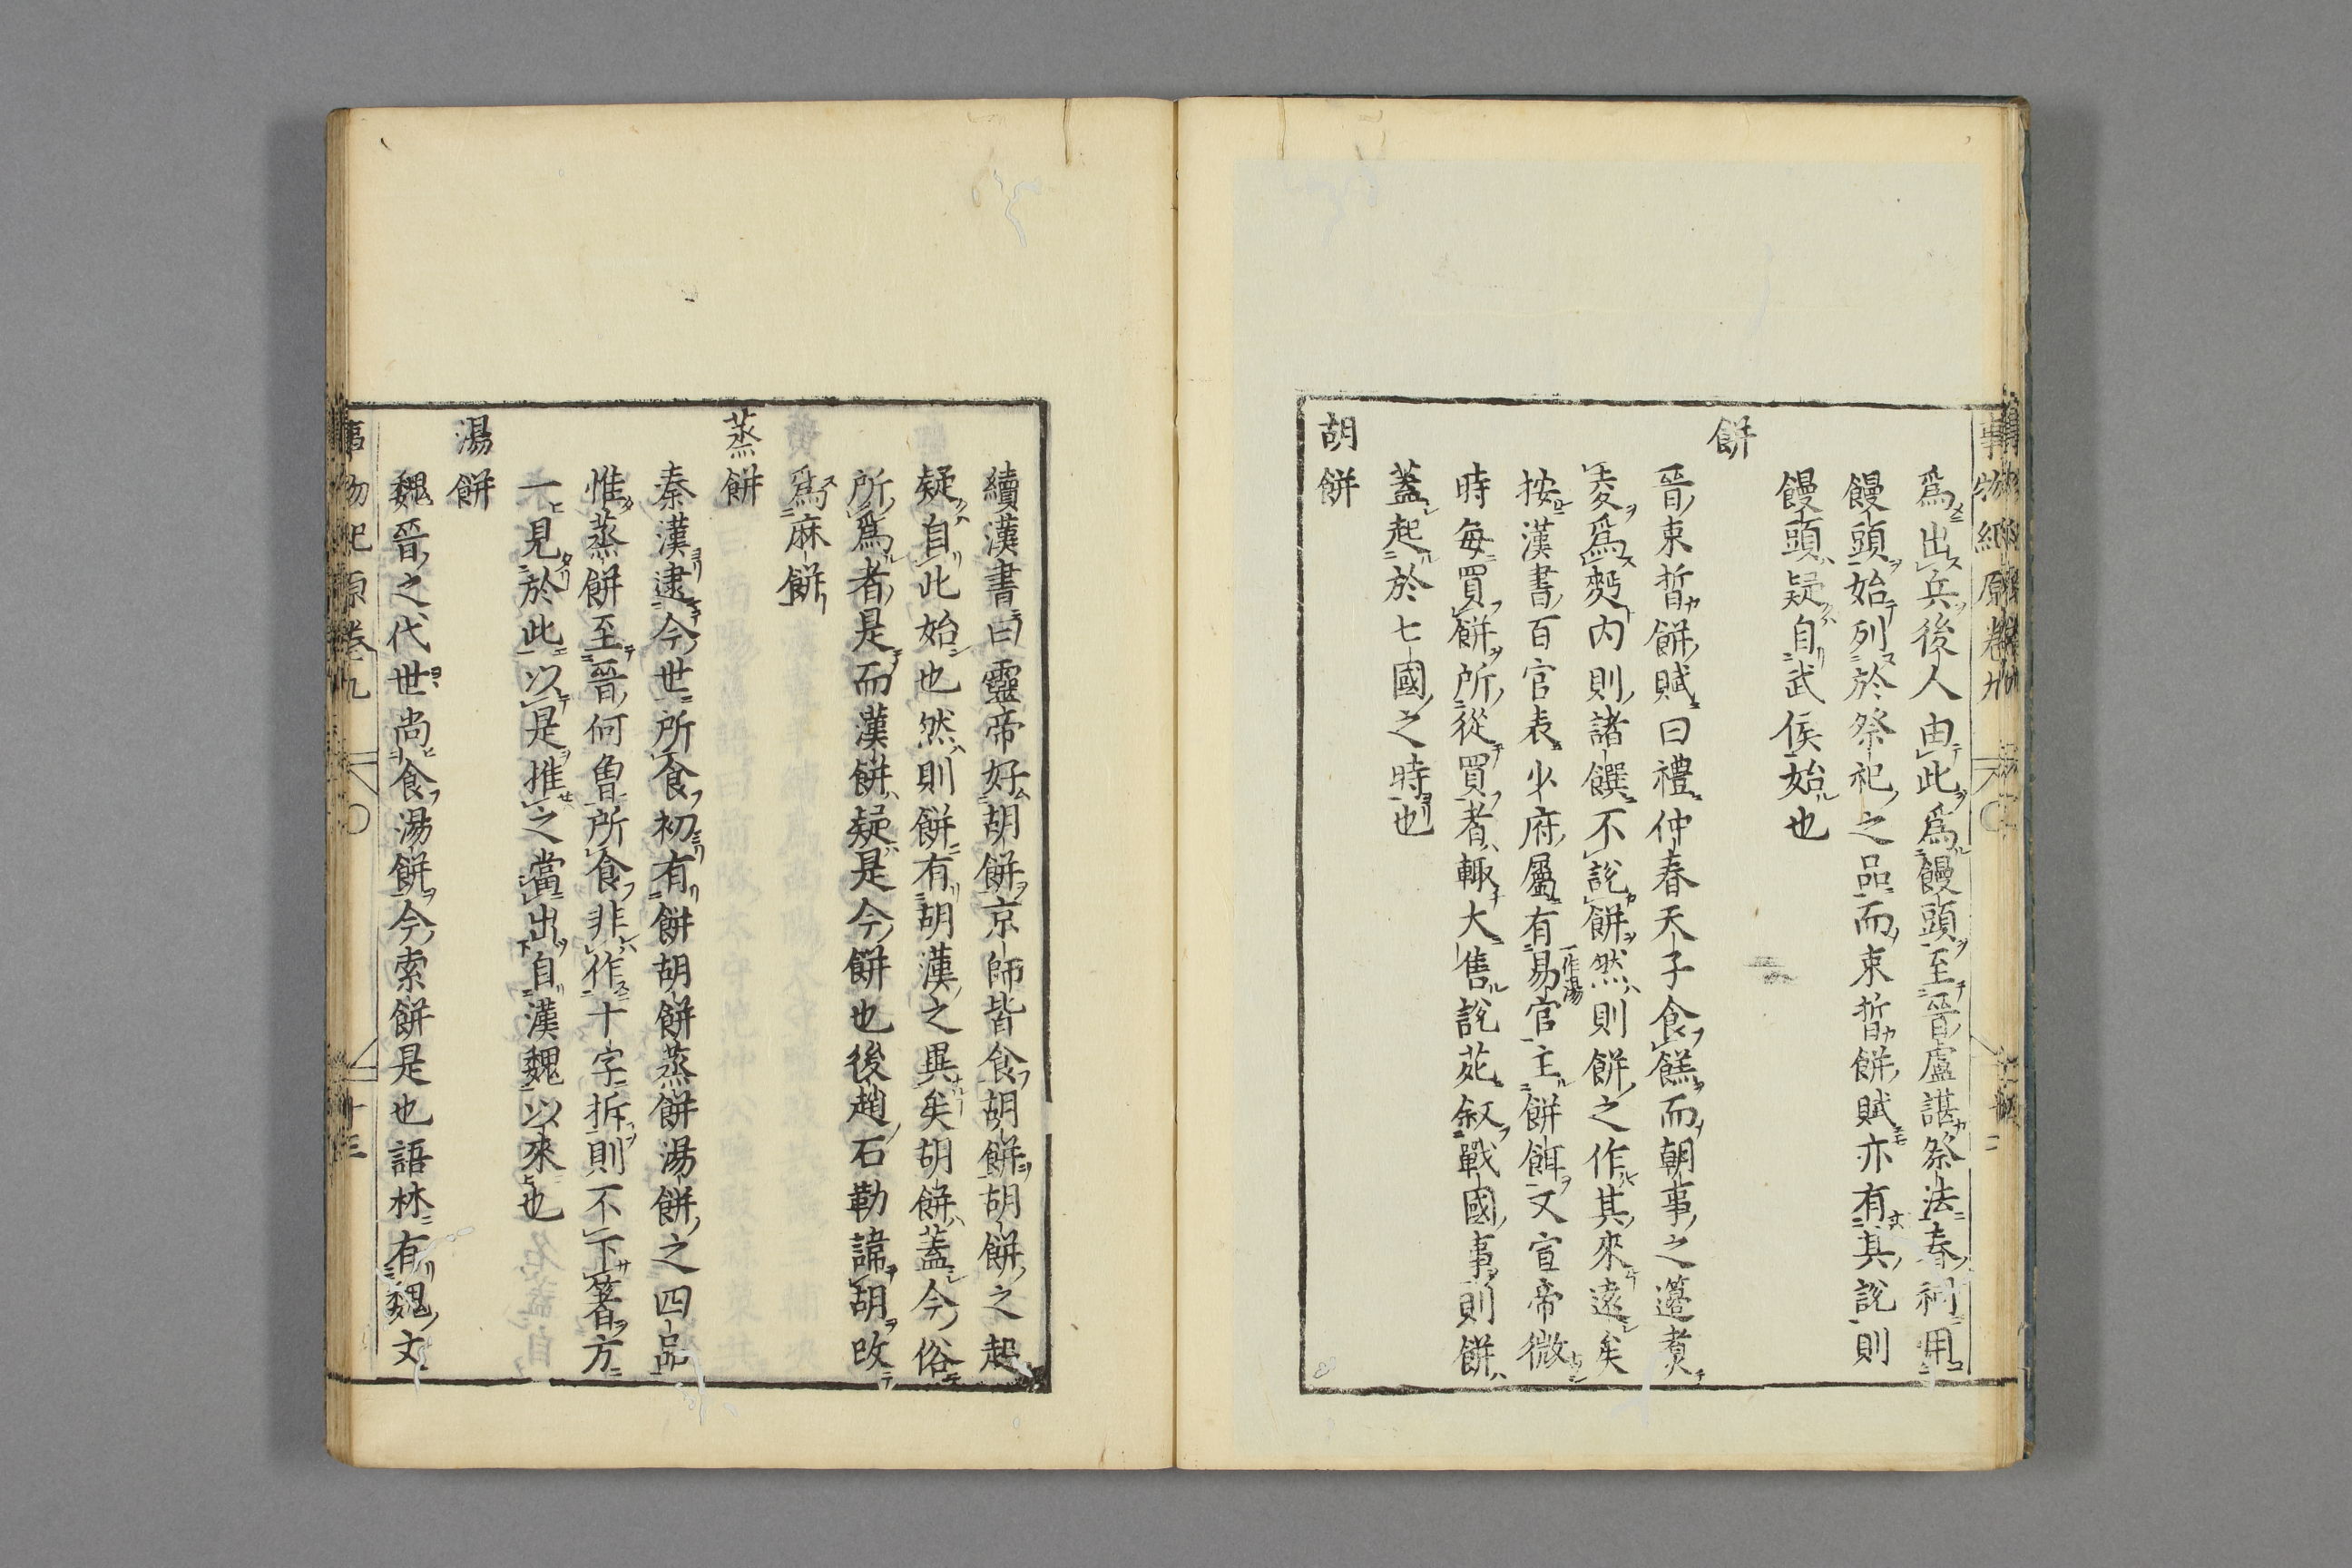 爲出兵後人由此爲饅頭至晉盧諶祭法春祠用
饅頭始列於祭祀之品而束皙餅賦亦有其說則
饅頭疑自武侯始也
餅
晉束皙餅賦曰禮仲春天子食餻而朝事之籩煑
麥爲麪內則諸饌不說餅然則餅之作其來遠矣
按漢書百官表少府屬有易官主餅餌又宣帝微
一作湯
時每買餅所從買者輒大售說苑叙戰國事則餅
蓋起於七國之時也
胡餅
續漢書曰靈帝好胡餅京師皆食胡餅胡餅之起
疑自此始也然則餅有胡漢之異矣胡餅蓋今俗
所爲者是而漢餅疑是今餅也後趙石勒諱胡改
爲麻餅
蒸餅
秦漢逮今世所食初有餅胡餅蒸餅湯餅之四品
惟蒸餅至晉何曾所食非作十字拆則不下箸方
一見於此以是推之當出自漢魏以來也
湯餅
魏晉之代世尚食湯餅今索餅是也語林有魏文
事物紀原卷九 十三